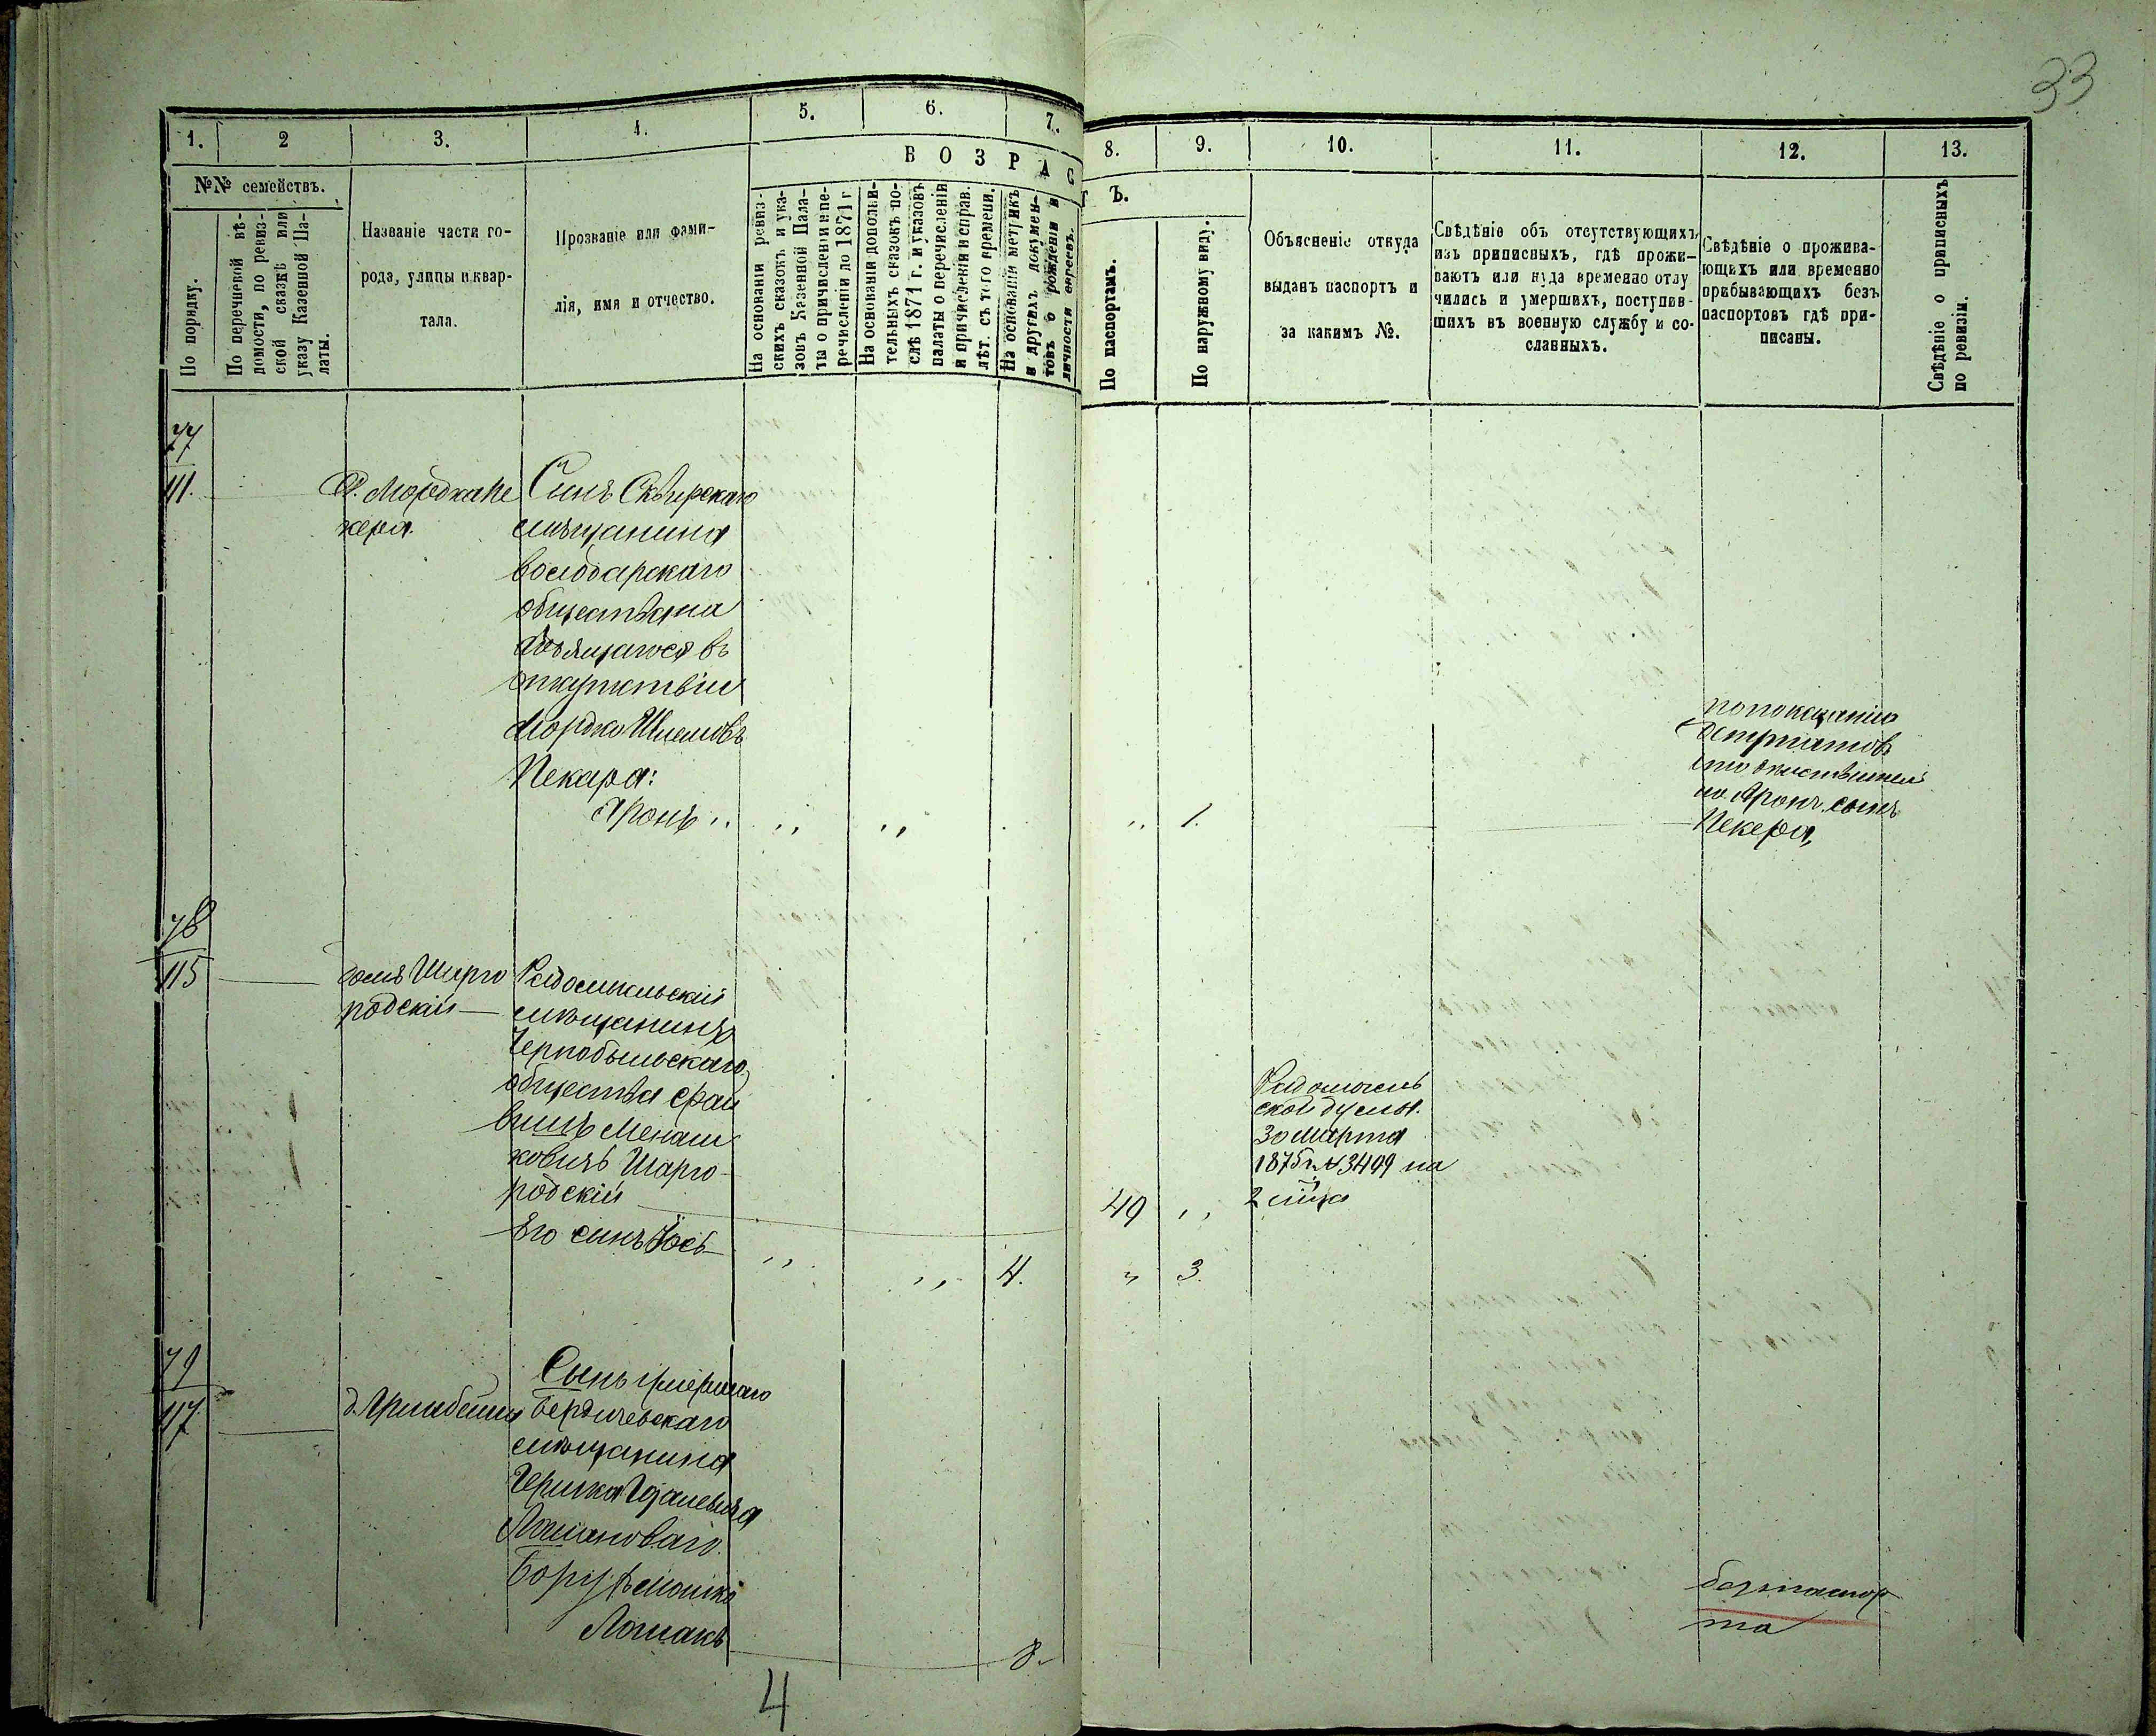 33
1. 2 3. 4. 5. 6. 7. 8. 9. 10. 11. 12. 13.
В О З Р А С Т Ъ.
№№ семействъ.
По порядку.
По перечневой вѣ-
домости, по ревиз-
ской сказкѣ или
указу Казенной Па-
латы.
Названіе части го-
рода, улицы и квар-
тала.
Прозваніе или фами-
лія, имя и отчество.
На основаніи ревиз-
скихъ сказокъ и ука-
зовъ Казенной Пала-
ты о причисленіи и пе-
речисленіи до 1871 г
На основаніи дополни-
тельныхъ сказокъ по-
слѣ 1871 г. и указовъ
палаты о перечисленіи
и причисленіи и справ.
лѣт. съ того времени.
На основаніи метрикъ
и другихъ докумен-
товъ о рожденіи и
личности евреевъ.
По паспортамъ.
По наружному виду.
Объясненіе откуда
выданъ паспортъ и
за какимъ №.
Свѣдѣніе объ отсутствующихъ
изъ приписныхъ, гдѣ прожи-
ваютъ или куда временно отлу
чились и умершихъ, поступив-
шихъ въ военную службу и со-
сланныхъ.
Свѣдѣніе о прожива-
ющихъ или временно
прибывающихъ безъ
паспортовъ гдѣ при-
писаны.
Свѣдѣніе о приписныхъ
по ревизіи.
77
111.
д. Мордка Пе
кера.
Сынъ Сквирскаго
мѣщанина
Володарскаго
общества
находящагося въ
отсутствіи
Мордко Шлемовъ
Пекара:
Аронъ „ „ „ „ 1.
по показанію
что дѣйствитель
но Аронъ сынъ
Пекера,
78
115
домъ Шарго
родскій
Радомысльскій
мѣщанинъ
Чернобыльскаго
общества Фай
вишъ Менаш
ковичъ Шарго
родскій
49 „
Радомысль
ской думы.
30 Марта
1875 г. № 3499 на
2 м͠ца
Его сынъ Іось „ „ 4. „ 3.
79
117
д. Гринберга
Сынъ умершаго
Бердичевскаго
мѣщанина
Гершка
Лошаковаго.
Борух Мошко
Лошакъ 8.
безъ паспор
та
4